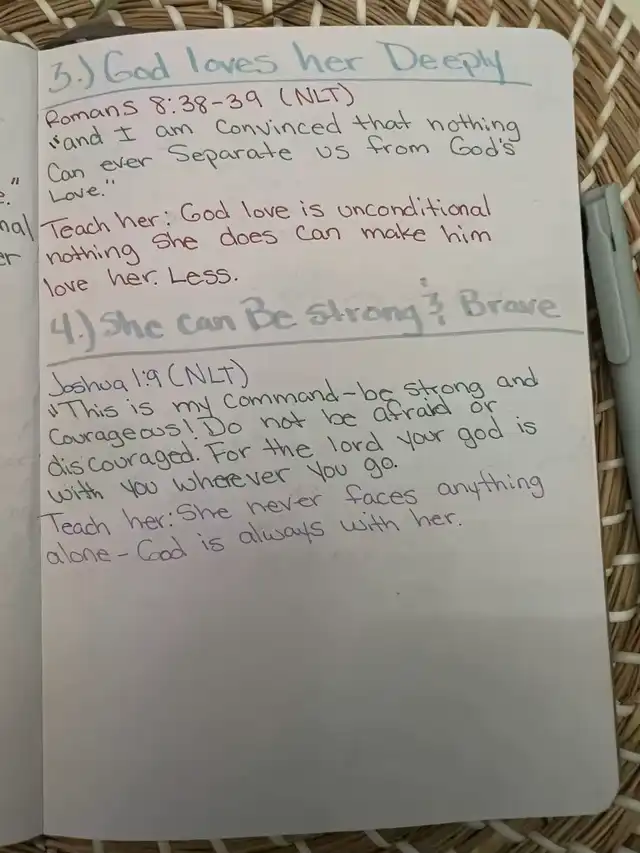 e."
nal
er
3.) God loves her Deeply
Romans 8:38-39 (NLT)
"and I am convinced that nothing
Can ever Separate us from God's
Love."
Teach her: God love is unconditional
nothing she does can make him
love her. Less.
4.) She can Be strong & Brave
Joshua 1:9 (NLT)
"This is my command-be strong and
Courageous! Do not be afraid or
discouraged. For the lord your god is
with you wherever you go.
Teach her: She never faces anything
alone - God is always with her.